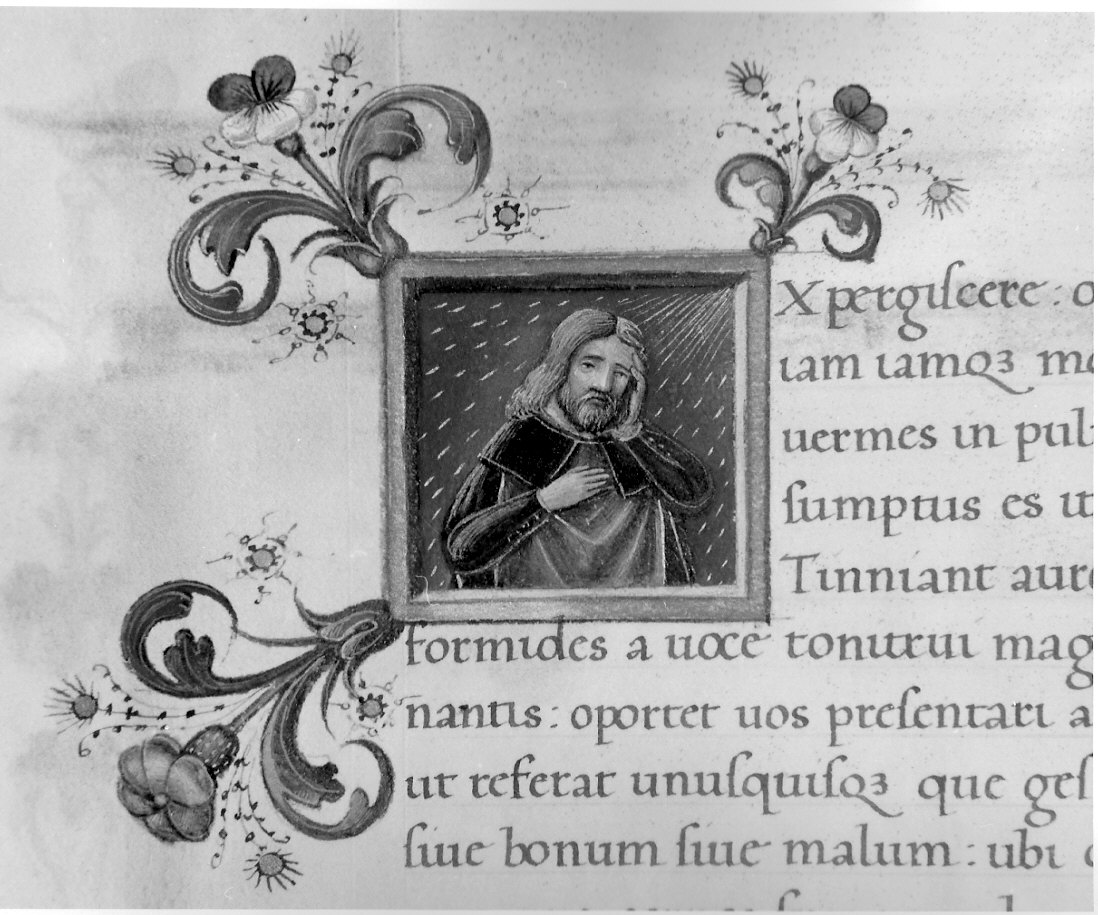 Xpergiſcere : o
iam iamqꝫ mo
uermes in pul
ſumptus es ut
Tinniant aure
formides a uoce tonitrui mag
nantis : oportet uos preſentari a
ut referat unuſquiſqꝫ que geſ
ſiue bonum ſiue malum : ubi